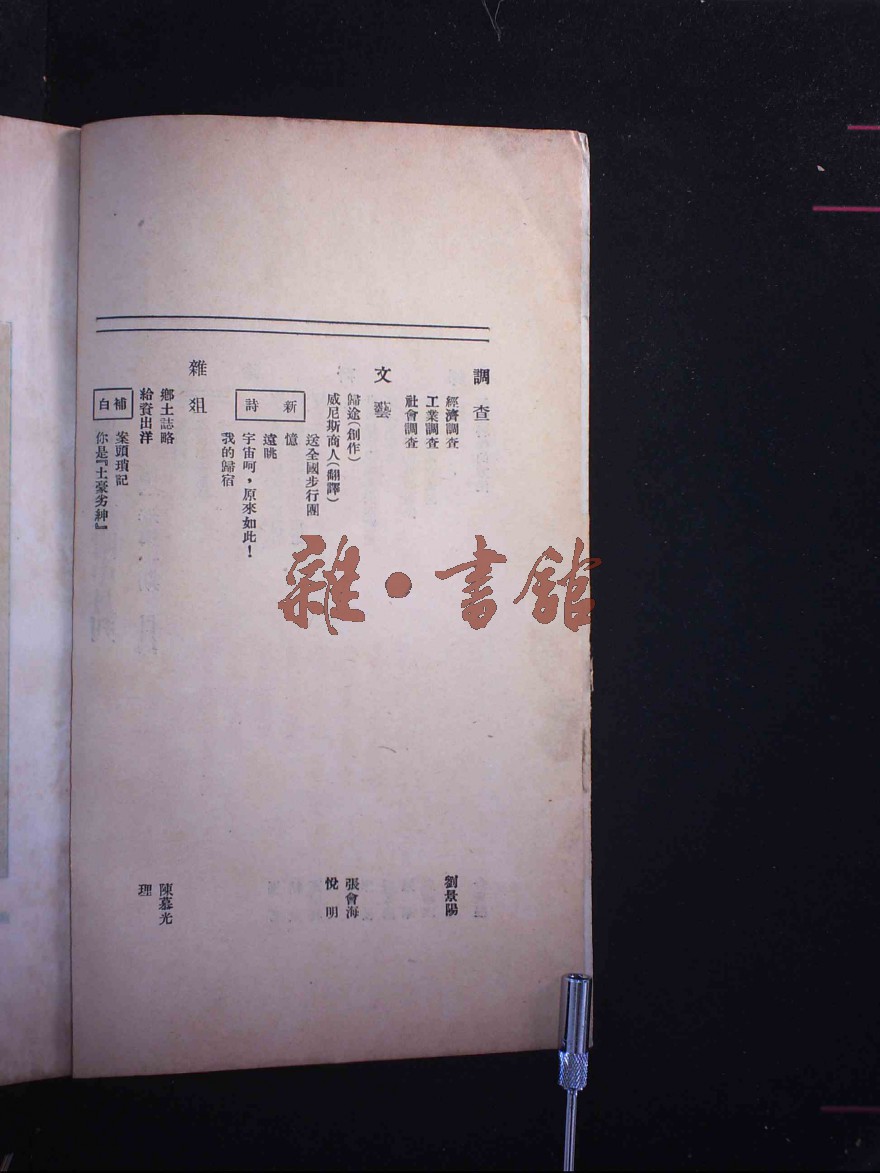 調查
經濟調查 劉景陽
工業調查
社會調查
文藝
歸途(創作) 張會海
威尼斯商人(翻譯) 悅明
新詩
送全國步行團
憶
遠眺
宇宙呵，原來如此！
我的歸宿
雜俎
鄉土誌略 陳慕光
給賚出洋 理
補白
案頭瑣記
你是『土豪劣紳』
雜·書館